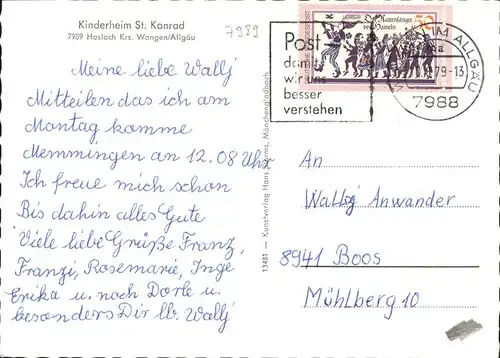 Kinderheim St. Konrad
7989 Haslach Krs. Wangen/Allgäu
7989
Meine liebe Wally
Mitteilen das ich am
Montag komme
Memmingen an 12.08 Uhr
Ich freue mich schon
Bis dahin alles Gute
Viele liebe Grüße Franz,
Franzi, Rosemarie, Inge
Erika u. noch Dorle u.
besonders Dir lb. Wally
13481 — Kunstverlag Hans
Mönchengladbach
Post
damit
wir uns
besser
verstehen
Der Rattenfänger
von Hameln
50
IM ALLGÄU
79-13
7988
An
Wally Anwander
8941 Boos
Mühlberg 10